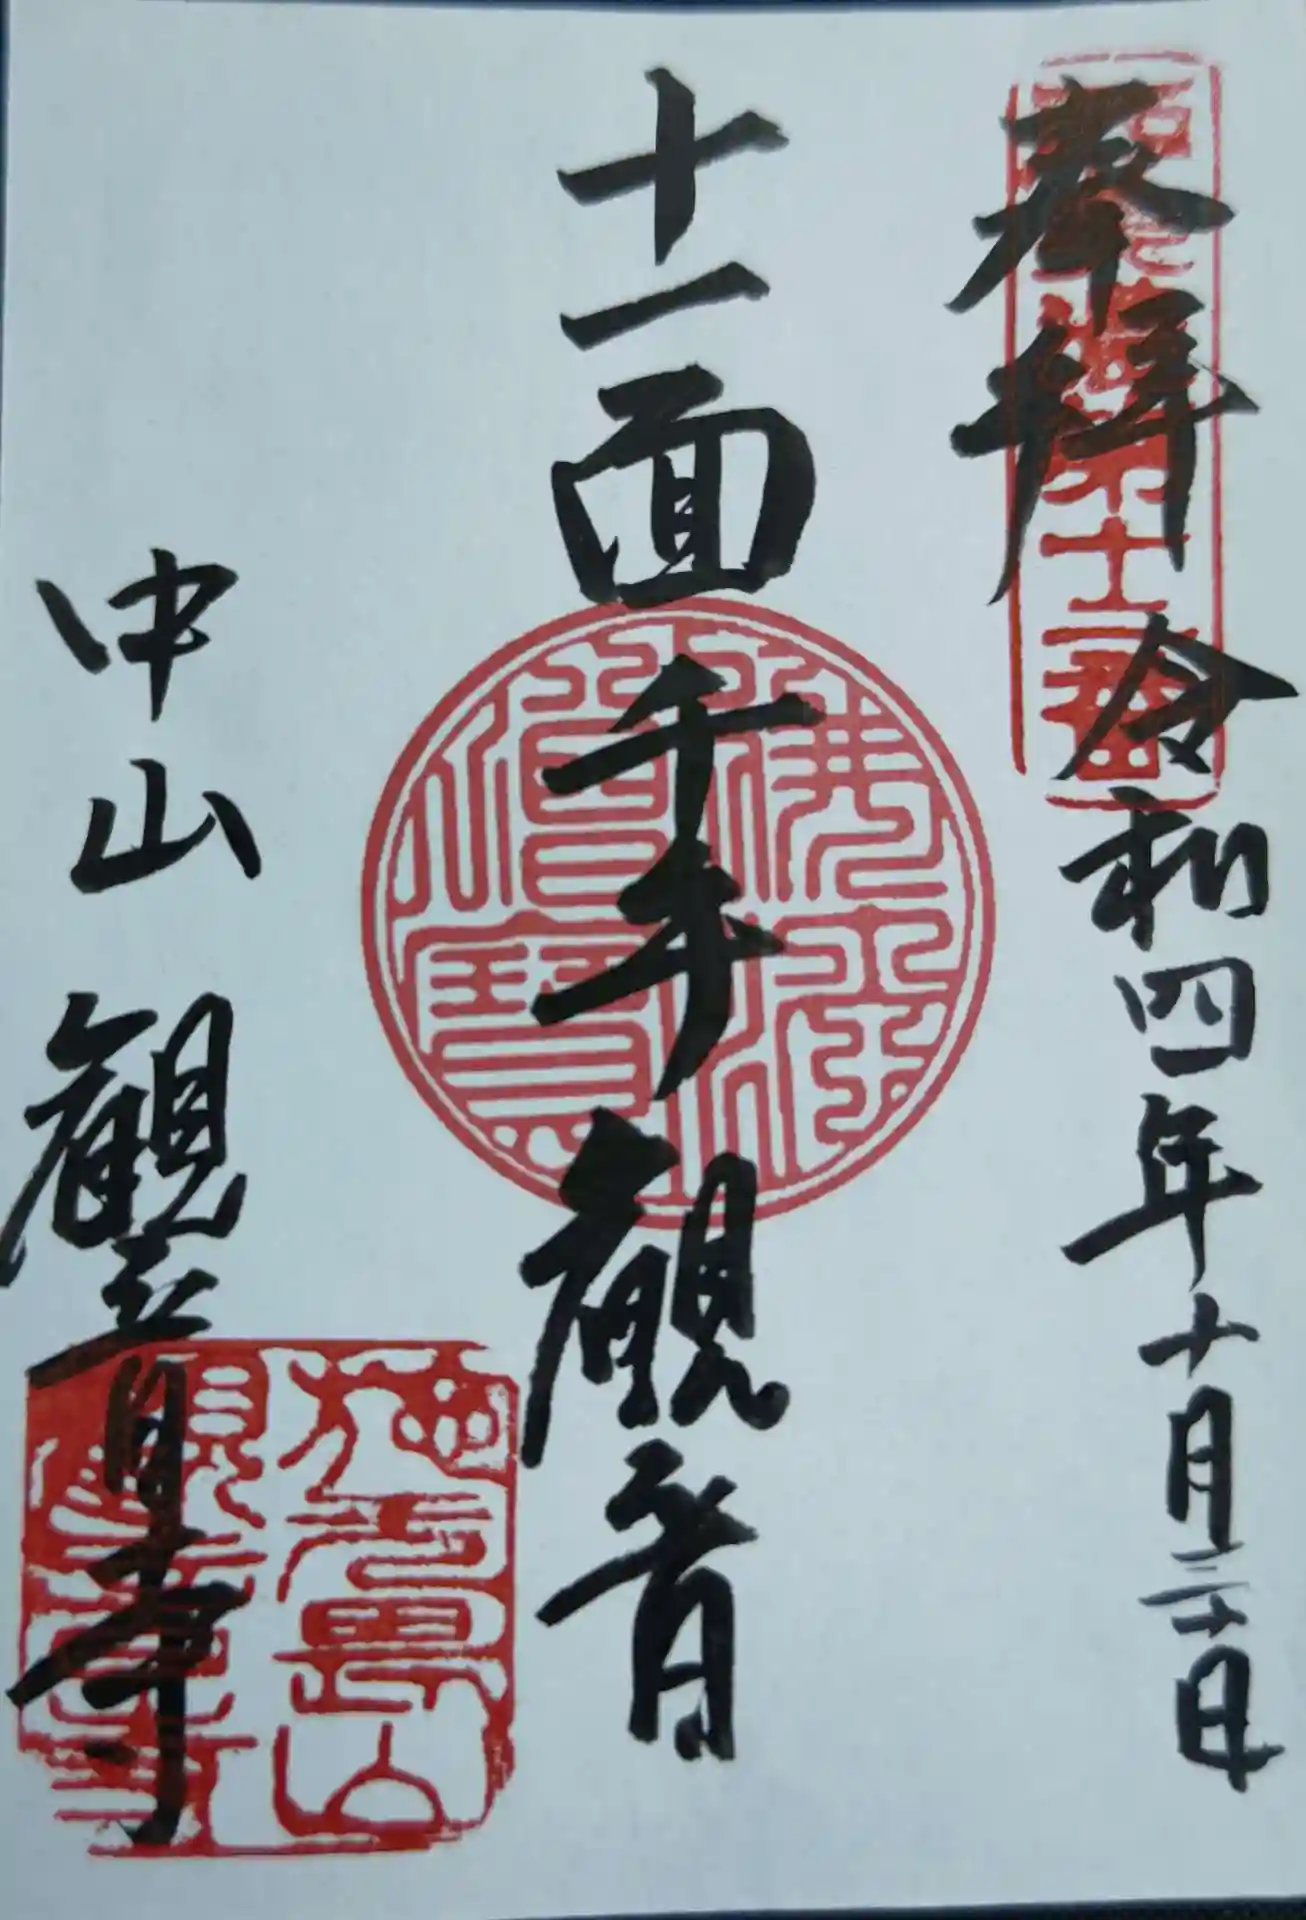 奉拝
令和四年十月二十日
十一面千手観音
中山観音寺
佛法僧寶